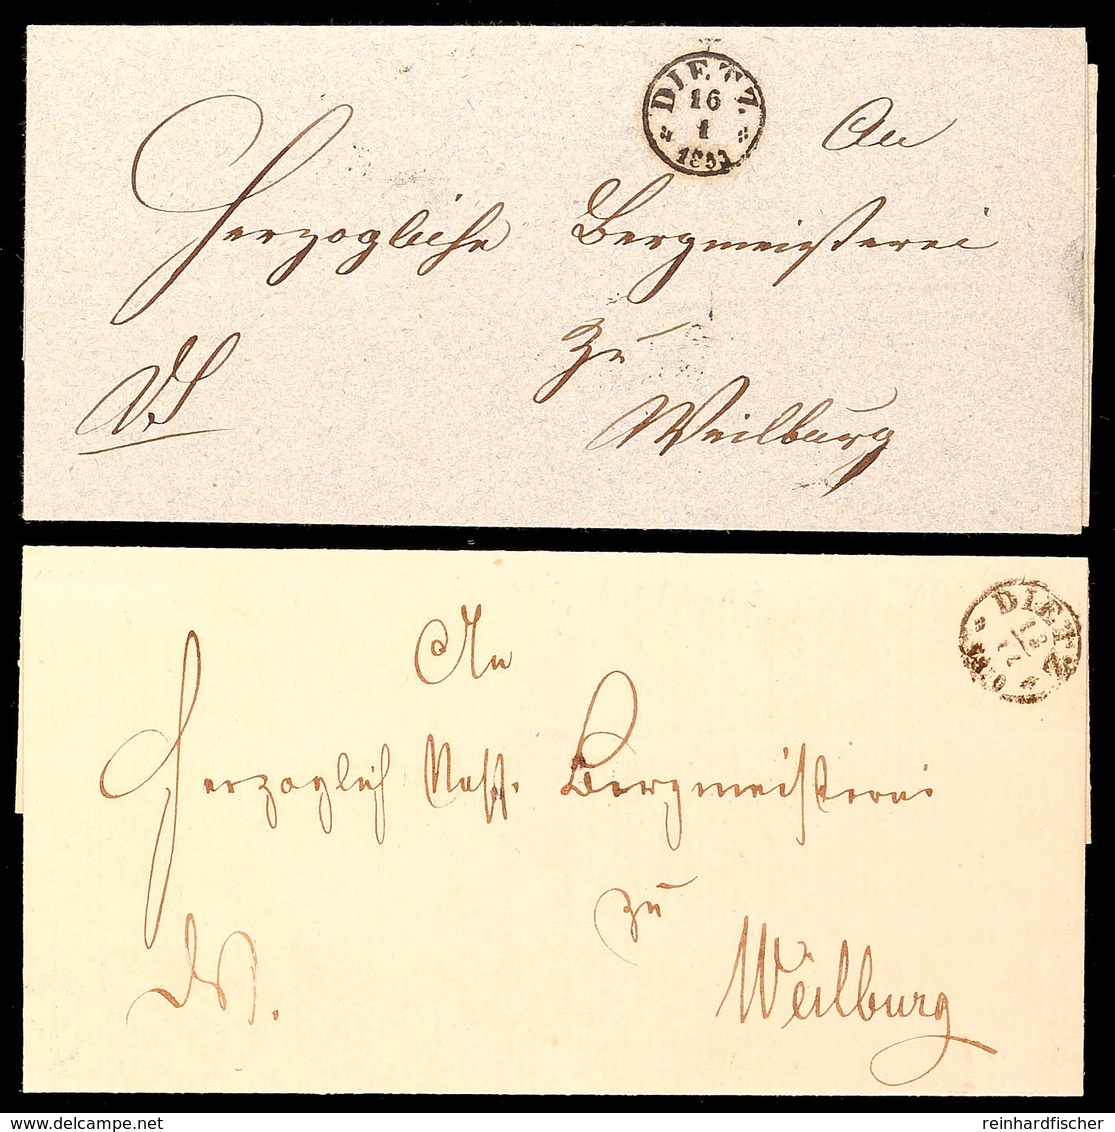 DIETZ
16
1
An
Herzogliche Bergmeisterei
zu
DS
Weilburg
DIETZ
An
Herzoglich Nass. Bergmeisterei
zu
DS.
Weilburg
www.delcampe.net
reinhardfischer